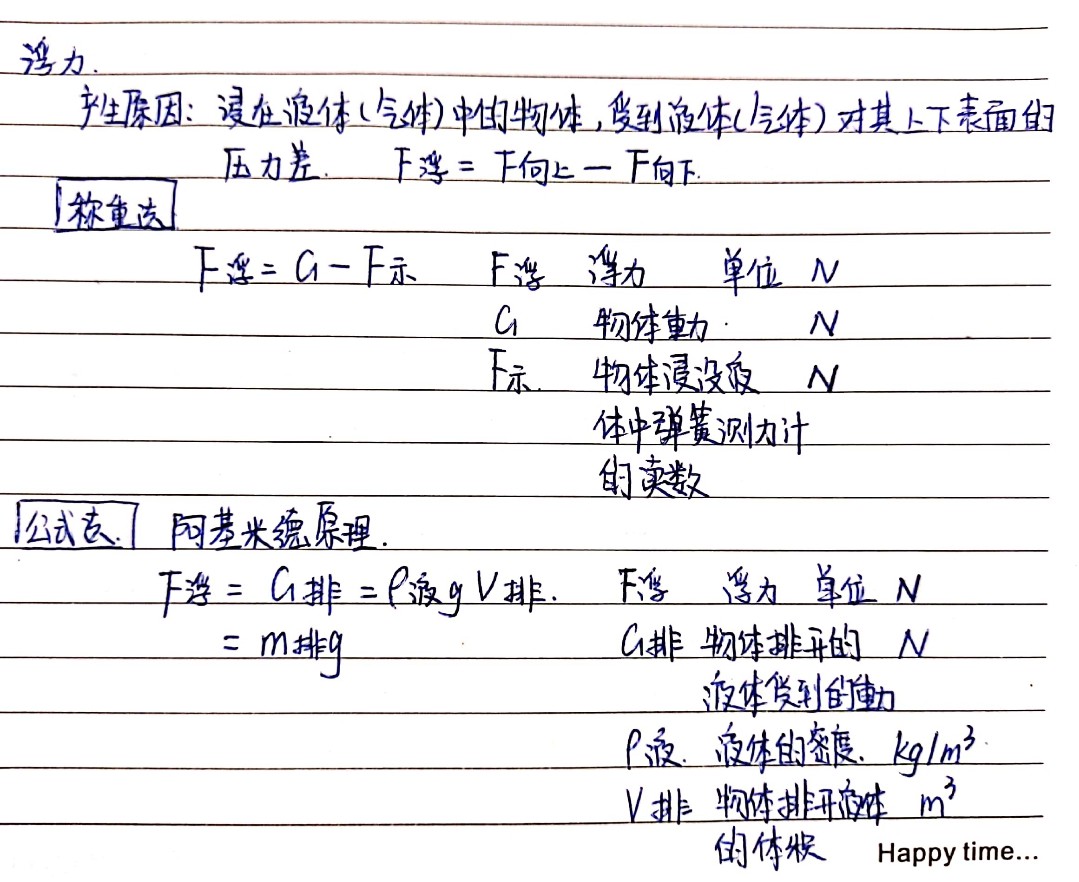 浮力.
产生原因: 浸在液体(气体)中的物体,受到液体(气体)对其上下表面的
压力差. F浮 = F向上 — F向下.
称重法
F浮 = G — F示 F浮 浮力 单位 N
G 物体重力. N
F示. 物体浸没液 N
体中弹簧测力计
的读数
公式法. 阿基米德原理.
F浮 = G排 = ρ液gV排. F浮 浮力 单位 N
= m排g G排 物体排开的 N
液体受到的重力
ρ液. 液体的密度. kg/m³.
V排 物体排开液体 m³
的体积 Happy time...